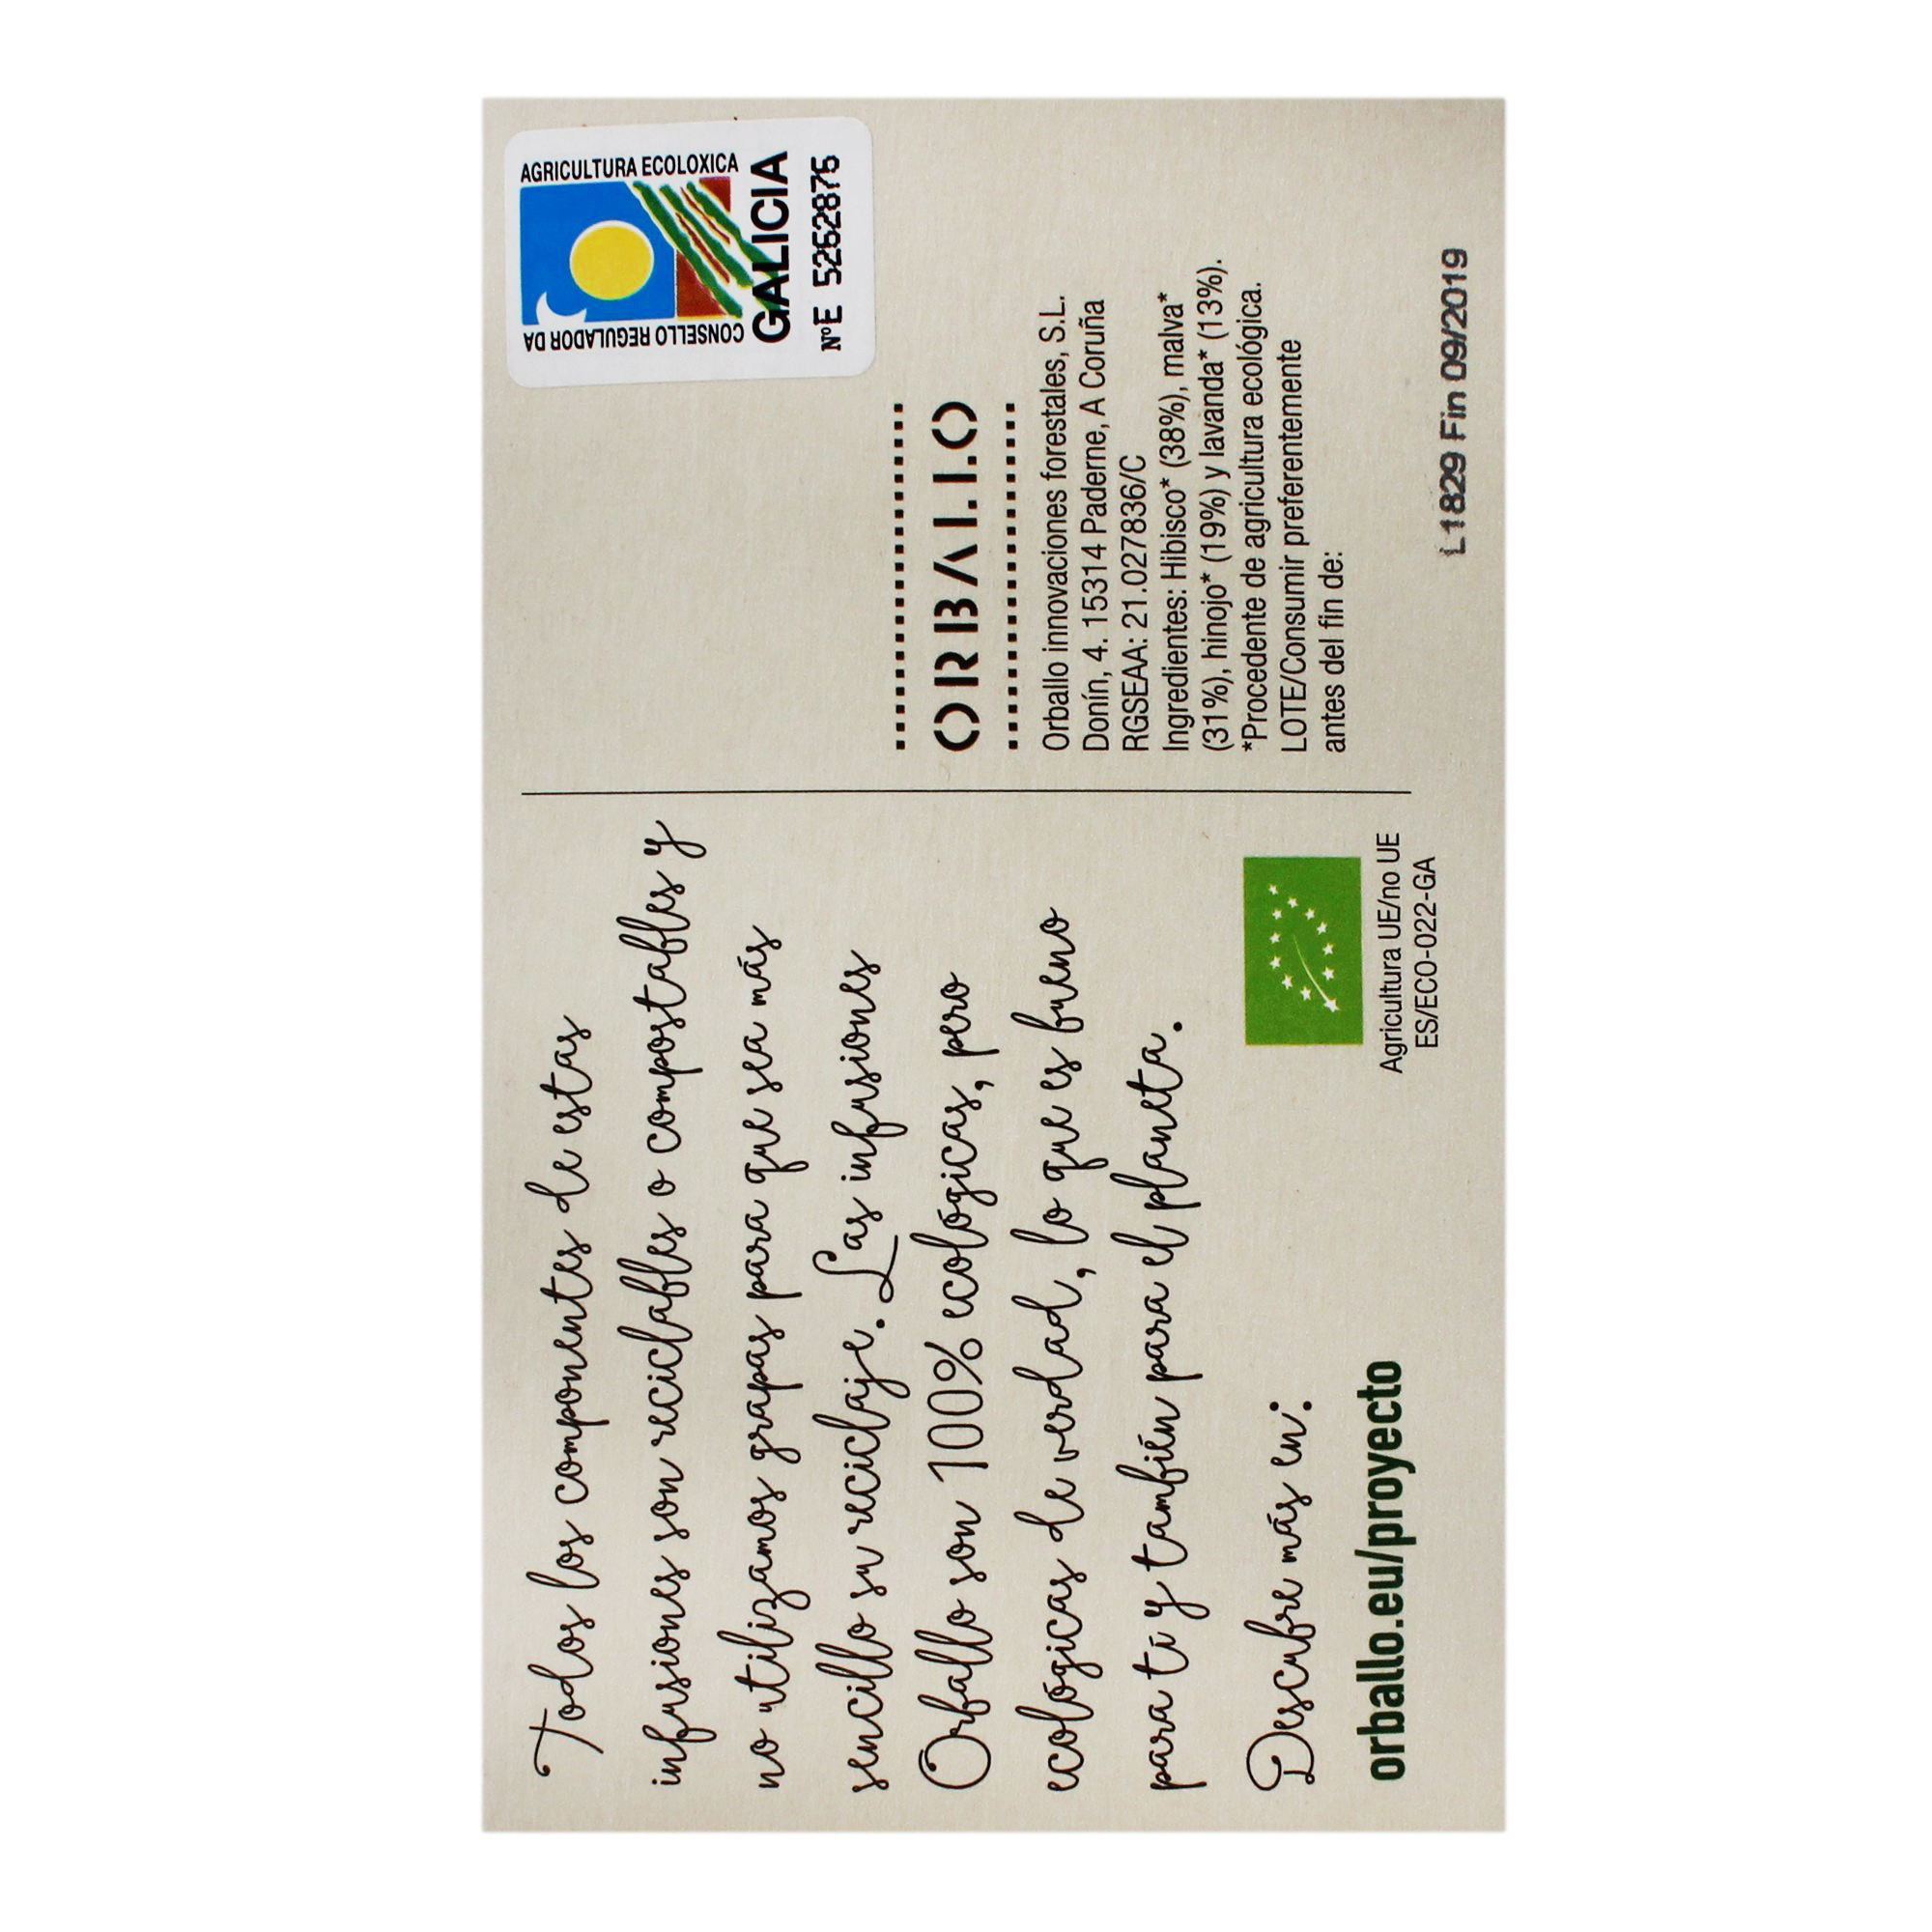 Todos los componentes de estas
infusiones son reciclables o compostables y
no utilizamos grapas para que sea más
sencillo su reciclaje. Las infusiones
Orballo son 100% ecológicas, pero
ecológicas de verdad, lo que es bueno
para tí y también para el planeta.
Descubre más en:
orballo.eu/proyecto
Agricultura UE/no UE
ES/ECO-022-GA
CONSELLO REGULADOR DA
AGRICULTURA ECOLOXICA
GALICIA
NºE 5262876
ORBALLO
Orballo innovaciones forestales, S.L.
Donín, 4. 15314 Paderne, A Coruña
RGSEAA: 21.027836/C
Ingredientes: Hibisco* (38%), malva*
(31%), hinojo* (19%) y lavanda* (13%).
*Procedente de agricultura ecológica.
LOTE/Consumir preferentemente
antes del fin de:
L1829 Fin 09/2019